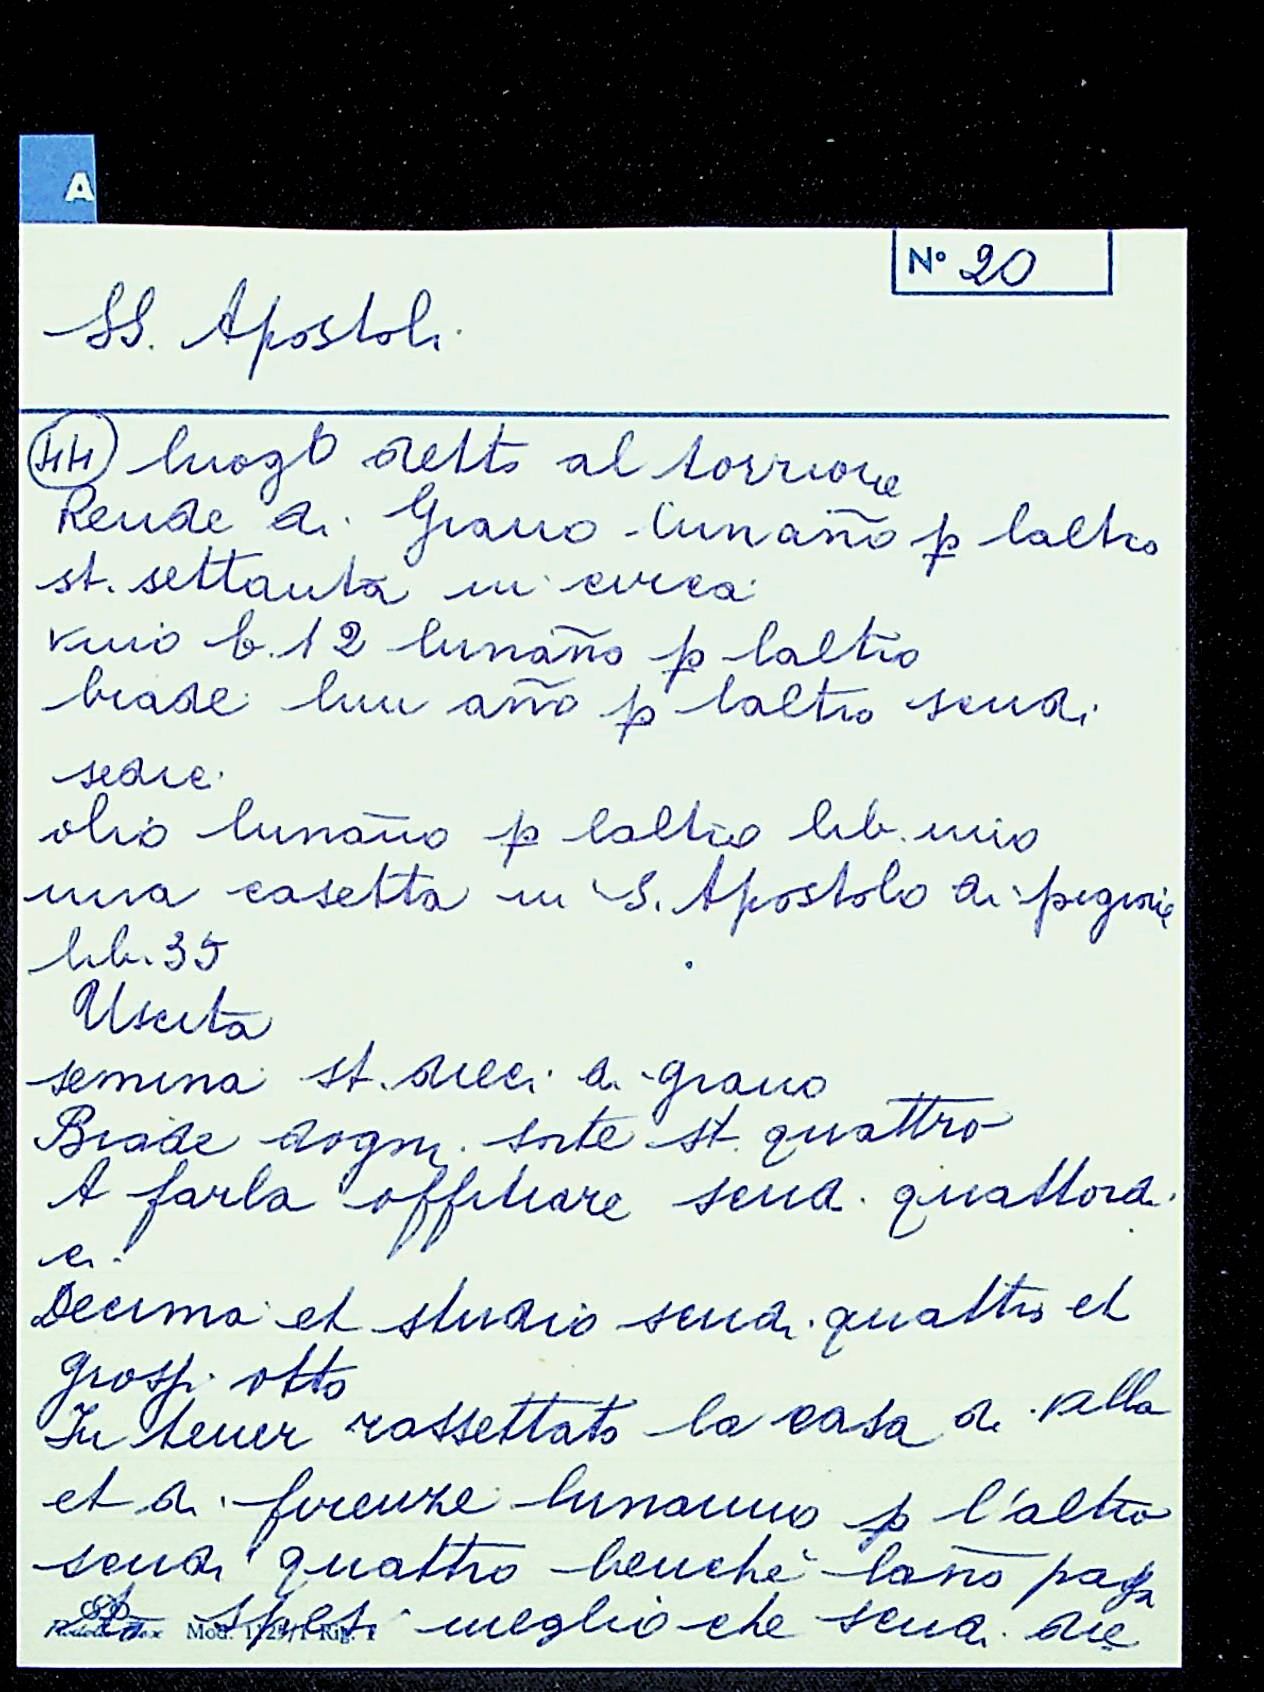 A
N° 20
SS. Apostoli
44 luogo detto al torrione
Rende di Grano lunaño p laltro
st. settanta in circa
vino b. 12 lunaño p laltro
biade lun año p laltro scudi
sedici
olio lunãno p laltro lib. mio
una casetta in S. Apostolo di pigione
lib. 35
Uscita
semina st. dieci di grano
Biade dogni sorte st. quattro
A farla offitiare scudi quattordi
ci.
Decima et studio scudi quattro et
grossi otto
In tener rassettato la casa di villa
et di firenze lunanno p l'altro
scudi quattro benche laño
spesi meglio che scudi